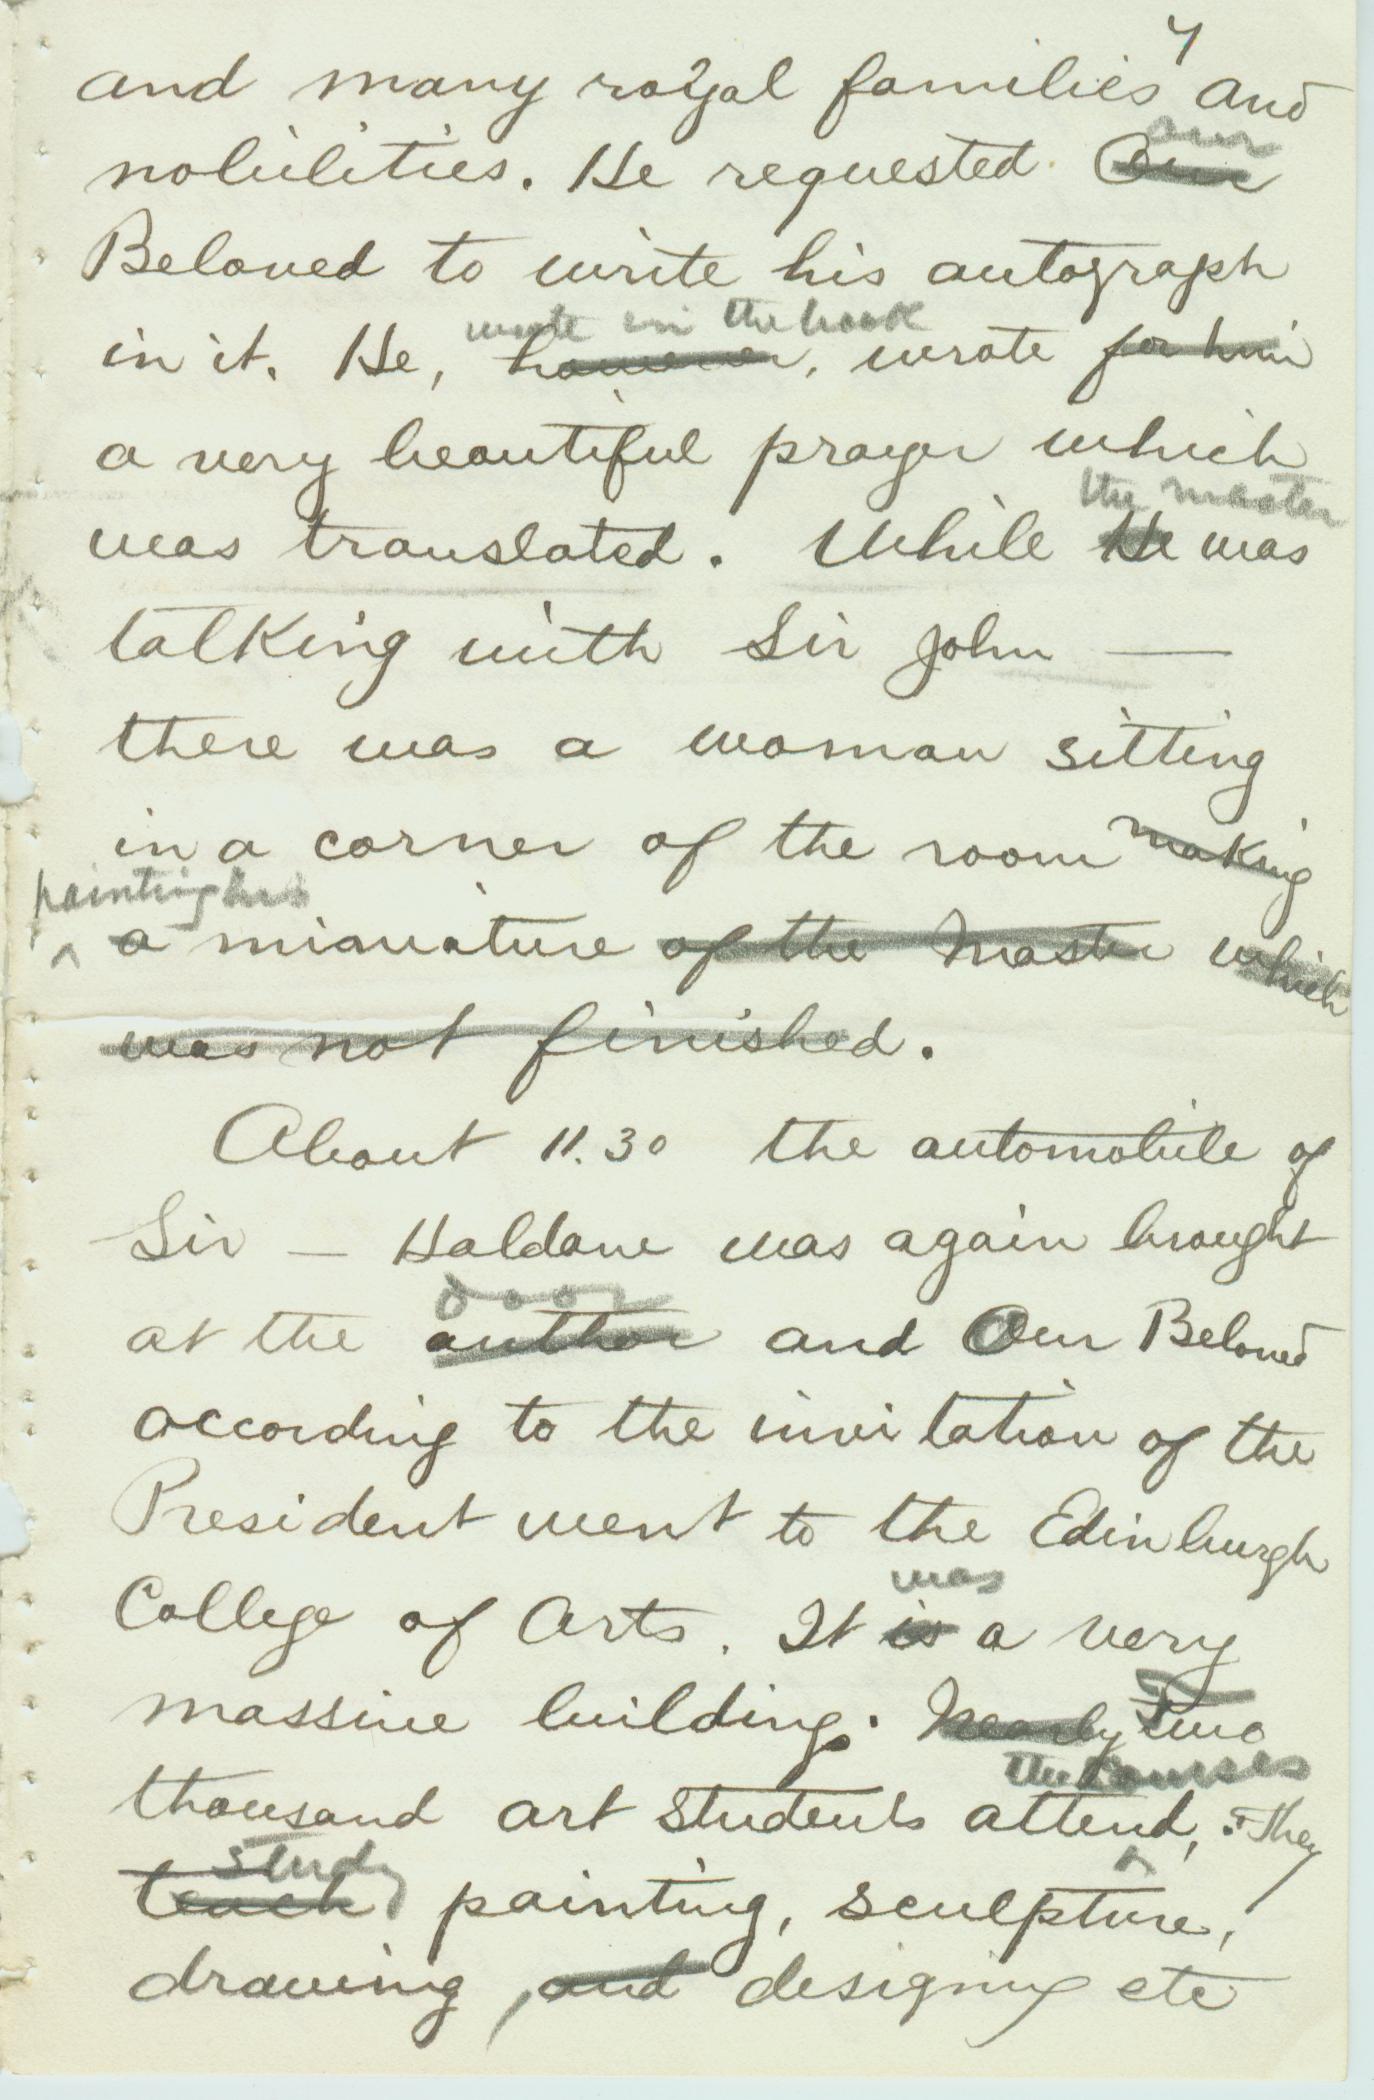 4
and many royal families and
our
nobilities. He requested Our
Beloved to write his autograph
wrote in the book
in it. He, however, wrote for him
a very beautiful prayer which
the master
was translated. While He was
talking with Sir John —
there was a woman sitting
in a corner of the room making
painting his
^ a mianature of the Master which
was not finished.
About 11.30 the automobile of
Sir — Haldane was again brought
door
at the author and Our Beloved
according to the invitation of the
President went to the Edinburgh
College of Arts. It is a very
was
massive building. Nearly Two
the courses
thousand art students attend, . They
study
teach painting, sculpture,
drawing, and designing etc